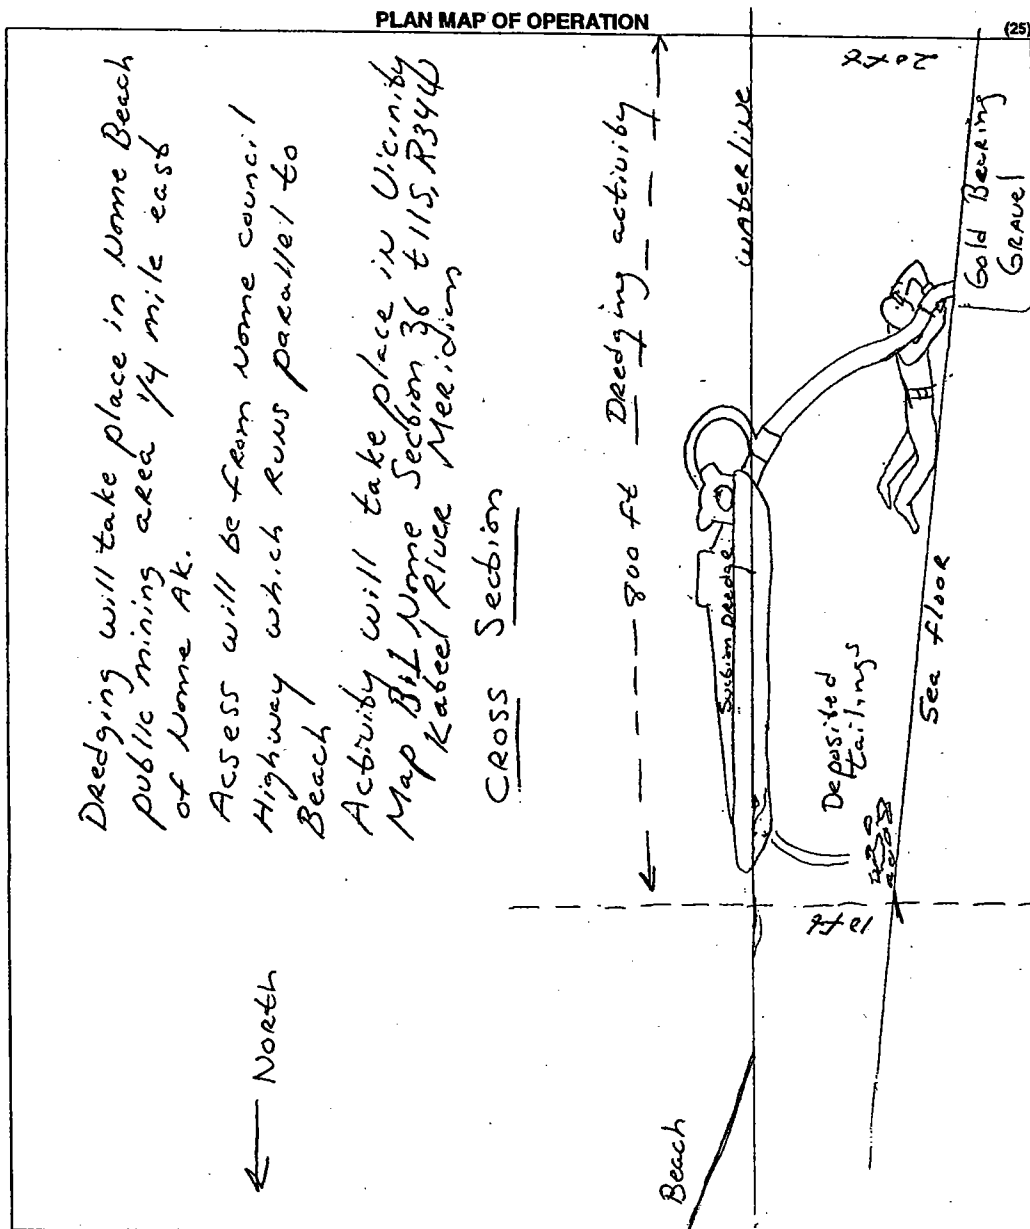 PLAN MAP OF OPERATION
(25)
Dredging will take place in Nome Beach
public mining area 1/4 mile east
of Nome AK.
Acsess will be from Nome council
Highway which runs parallel to
Beach
Activity will take place in Vicinity
Map B-1 Nome Section 36 t 11S, R34W
Kateel River Meridian
CROSS Section
North
800 ft Dredging activity
waterline
20 ft
Suction Dredge
Gold Bearing
GRAVEL
Deposited
tailings
Sea floor
Beach